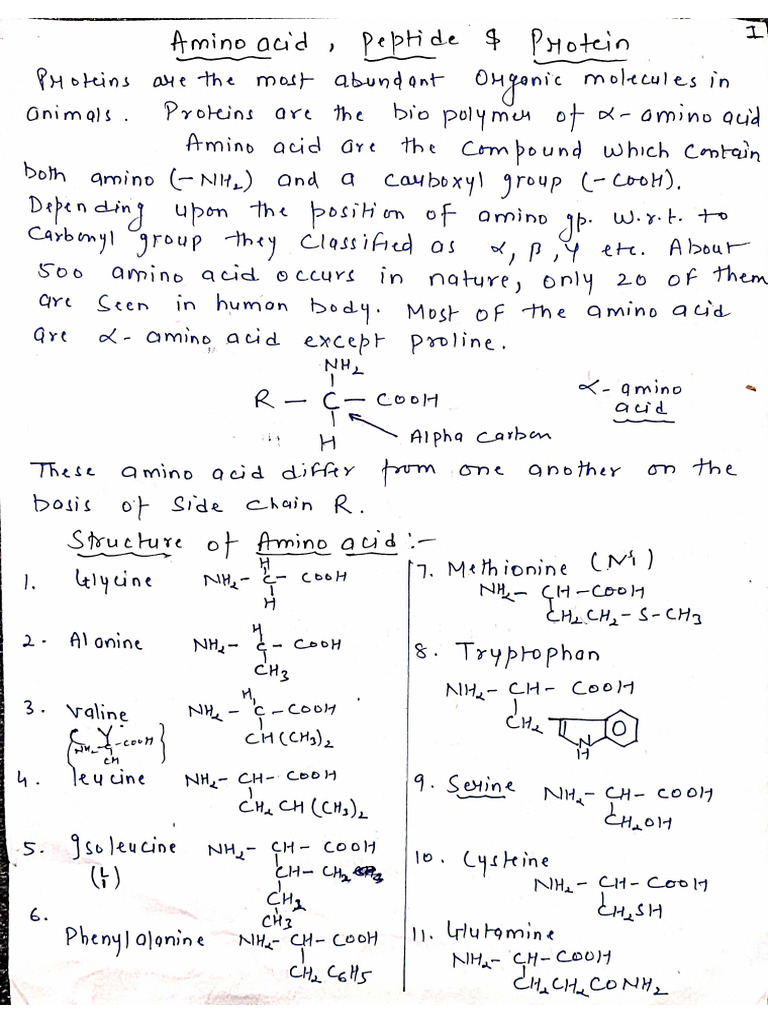 1
Amino acid, Peptide & Protein
Proteins are the most abundant Organic molecules in
animals. Proteins are the bio polymer of α-amino acid
Amino acid are the compound which contain
both amino (-NH2) and a carboxyl group (-COOH).
Depending upon the position of amino gp. w.r.t. to
Carbonyl group they classified as α, β, γ etc. About
500 amino acid occurs in nature, only 20 of them
are seen in human body. Most of the amino acid
are α-amino acid except proline.
NH2
R - C - COOH
H
Alpha Carbon
α-amino
acid
These amino acid differ from one another on the
basis of side chain R.
Structure of Amino acid :-
1. Glycine
H
NH2 - C - COOH
H
2. Alanine
H
NH2 - C - COOH
CH3
3. Valine
H
NH2 - C - COOH
CH(CH3)2
NH2 - C - COOH
CH
4. leucine
NH2 - CH - COOH
CH2 CH (CH3)2
5. Isoleucine
NH2 - CH - COOH
CH - CH2
CH2
CH3
6. Phenylalanine
NH2 - CH - COOH
CH2 C6H5
7. Methionine
NH2 - CH - COOH
CH2 CH2 - S - CH3
8. Tryptophan
NH2 - CH - COOH
CH2
N
H
9. Serine
NH2 - CH - COOH
CH2OH
10. Cysteine
NH2 - CH - COOH
CH2SH
11. Glutamine
NH2 - CH - COOH
CH2CH2CONH2